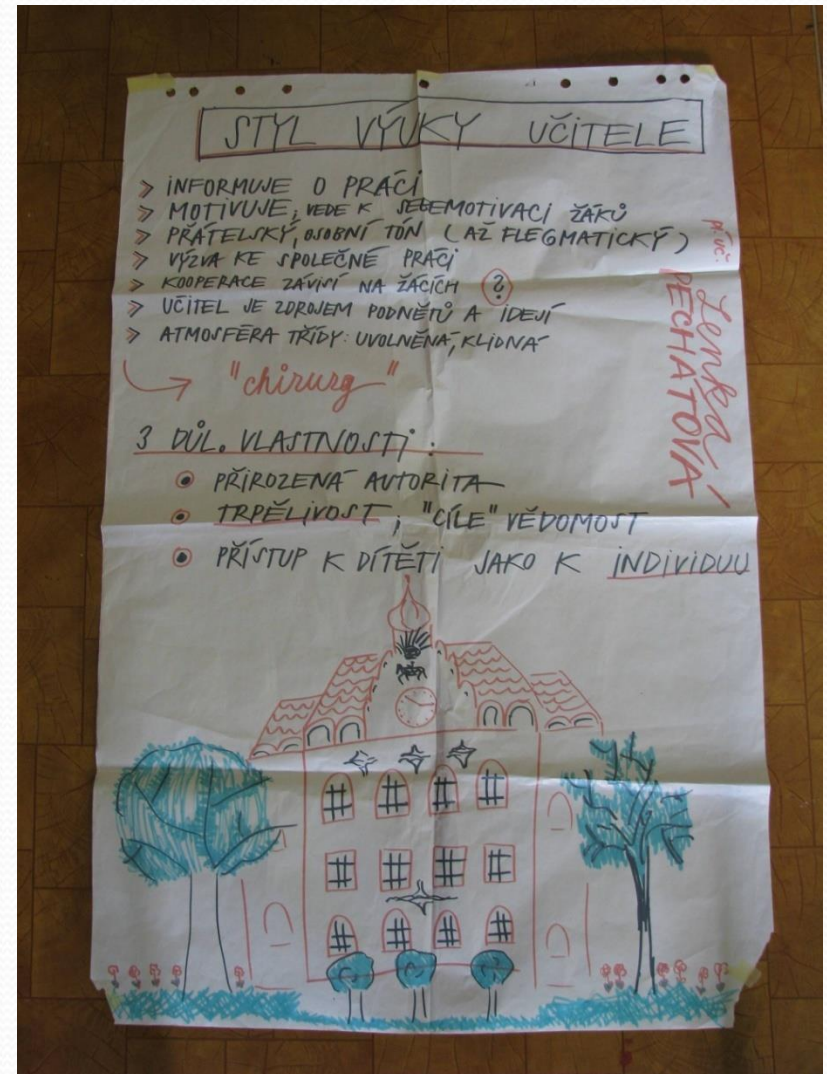 STYL VÝUKY UČITELE
> INFORMUJE O PRÁCI
> MOTIVUJE, VEDE K SEBEMOTIVACI ŽÁKŮ
> PŘÁTELSKÝ, OSOBNÍ TÓN (AŽ FLEGMATICKÝ)
> VÝZVA KE SPOLEČNÉ PRÁCI
> KOOPERACE ZÁVISÍ NA ŽÁCÍCH ?
> UČITEL JE ZDROJEM PODNĚTŮ A IDEJÍ
> ATMOSFÉRA TŘÍDY: UVOLNĚNÁ, KLIDNÁ
"chirurg"
3 DŮL. VLASTNOSTI:
• PŘIROZENÁ AUTORITA
• TRPĚLIVOST, "CÍLE" VĚDOMOST
• PŘÍSTUP K DÍTĚTI JAKO K INDIVIDUU
p. uč.
Lenka
PECHÁTOVÁ